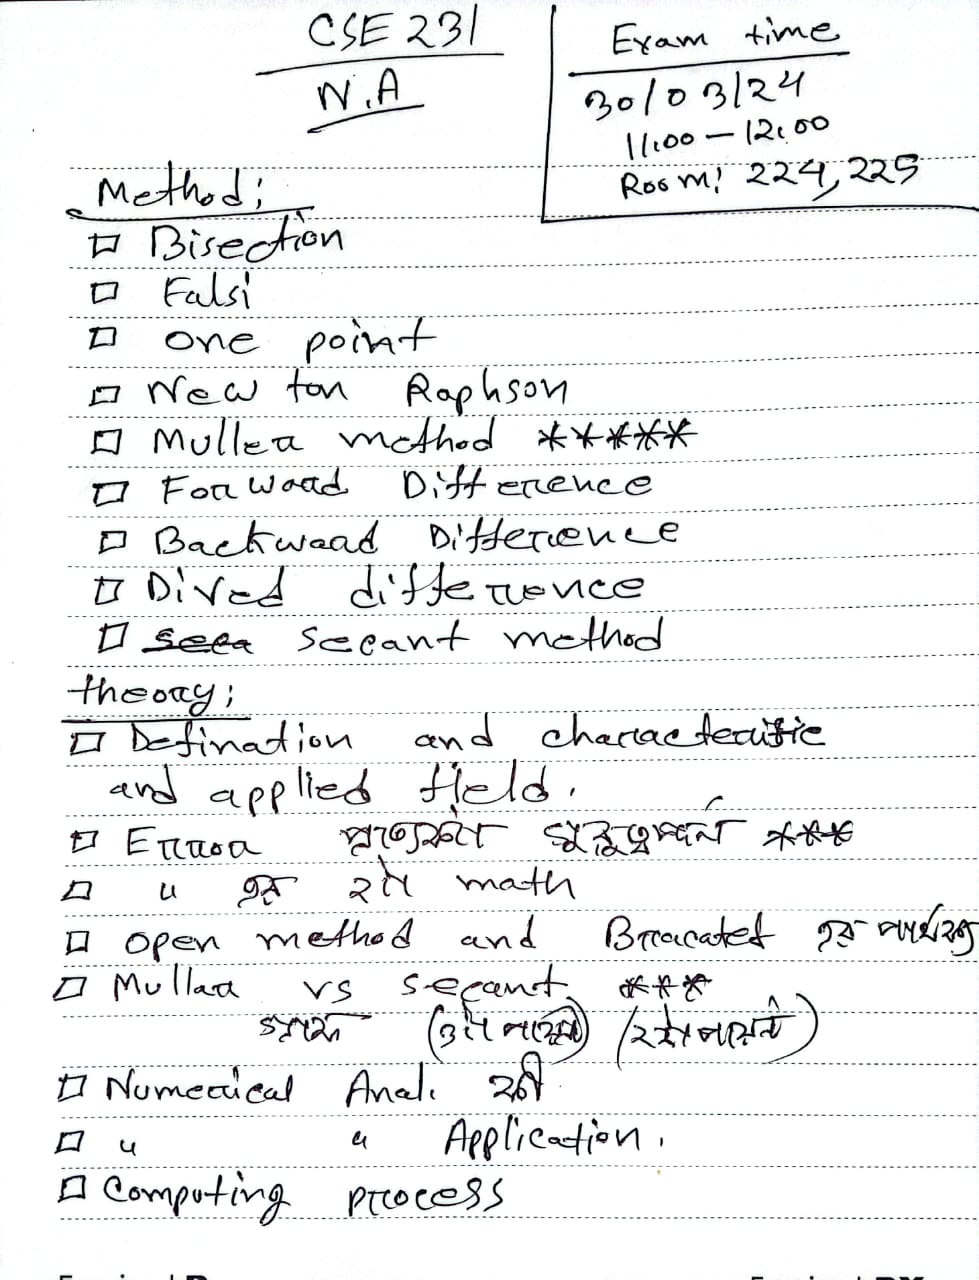 CSE 231
N.A
Exam time
30/03/24
11:00 – 12:00
Room: 224, 225
Method:
Bisection
Falsi
one point
New ton Raphson
Muller method *****
Forward Difference
Backward Difference
Dived difference
seca secant method
theory:
Defination and characteristic
and applied field.
Error প্রত্যেকটা গুরুত্বপূর্ণ ***
" এর ২টা math
open method and Bracated এর পার্থক্য
Mullar vs secant ***
(৩টা পয়েন্ট) (২টা পয়েন্ট)
Numerical Anal. কী
" " Application.
Computing process